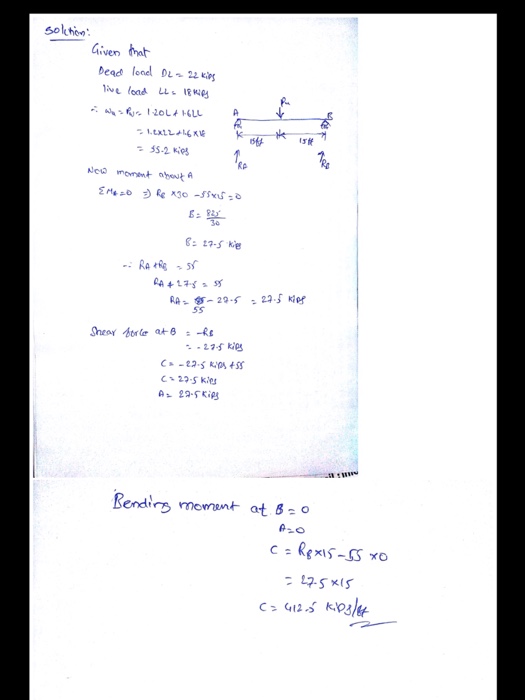 Solution:
Given that
Dead load DL = 22 kips
live load LL = 18 kips
∴ Wu = Pu = 1.2DL + 1.6LL
= 1.2x22 + 1.6x18
= 55.2 kips
Pu
A B
15ft 15ft
RA RB
Now moment about A
ΣMA=0 ⇒ RB x30 - 55x15 = 0
B = 825/30
B = 27.5 kips
∴ RA + RB = 55
RA + 27.5 = 55
RA = 55 - 27.5 = 27.5 kips
Shear force at B = -RB
= -27.5 kips
C = -27.5 kips + 55
C = 27.5 kips
A = 27.5 kips
Bending moment at B = 0
A = 0
C = RB x15 - 55 x0
= 27.5 x15
C = 412.5 kips/ft